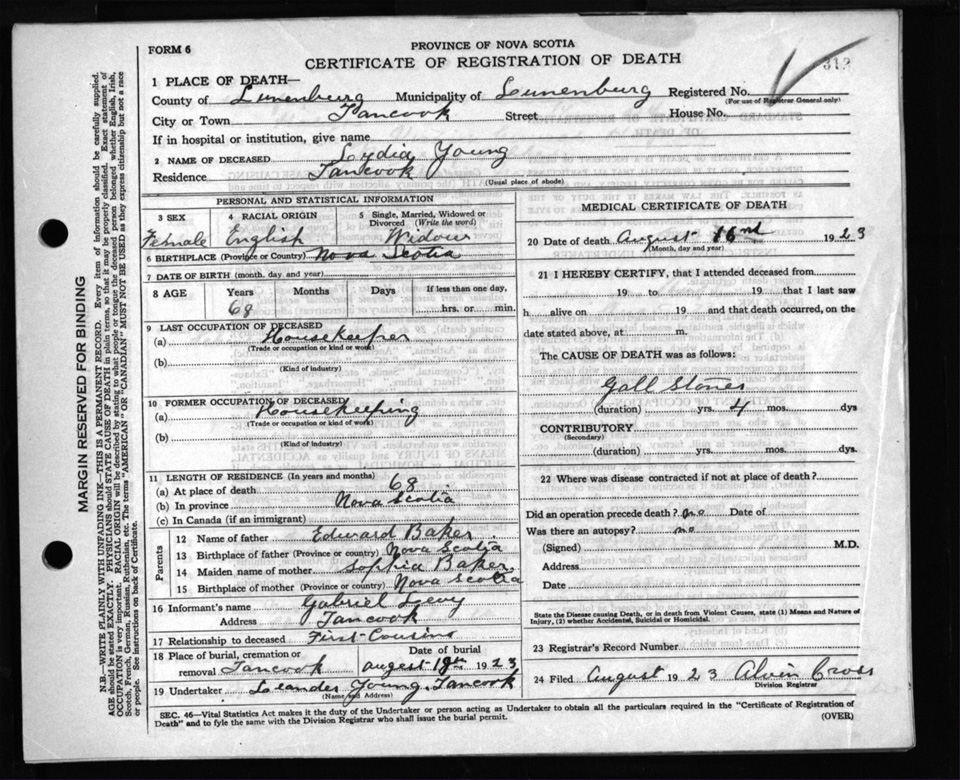 312
FORM 6
PROVINCE OF NOVA SCOTIA
CERTIFICATE OF REGISTRATION OF DEATH
1 PLACE OF DEATH—
County of Lunenburg Municipality of Lunenburg Registered No.
(For use of Registrar General only)
City or Town Tancook Street House No.
If in hospital or institution, give name
2 NAME OF DECEASED Lydia Young
Residence Tancook
(Usual place of abode)
PERSONAL AND STATISTICAL INFORMATION
3 SEX 4 RACIAL ORIGIN 5 Single, Married, Widowed or Divorced (Write the word)
Female English Widow
6 BIRTHPLACE (Province or Country) Nova Scotia
7 DATE OF BIRTH (month, day and year)
8 AGE Years Months Days If less than one day,
68 hrs. or min.
9 LAST OCCUPATION OF DECEASED
(a) Housekeeper
(Trade or occupation or kind of work)
(b)
(Kind of industry)
10 FORMER OCCUPATION OF DECEASED
(a) Housekeeping
(Trade or occupation or kind of work)
(b)
(Kind of industry)
11 LENGTH OF RESIDENCE (In years and months)
(a) At place of death 68
(b) In province Nova Scotia
(c) In Canada (if an immigrant)
Parents
12 Name of father Edward Baker
13 Birthplace of father (Province or country) Nova Scotia
14 Maiden name of mother Sophia Baker
15 Birthplace of mother (Province or country) Nova Scotia
16 Informant's name Gabriel Levy
Address Tancook
17 Relationship to deceased First Cousins
18 Place of burial, cremation or removal Tancook Date of burial August 18th 1923
19 Undertaker Leander Young, Tancook
(Name and Address)
MEDICAL CERTIFICATE OF DEATH
20 Date of death August 1923
(Month, day and year)
21 I HEREBY CERTIFY, that I attended deceased from
19 to 19 that I last saw
h alive on 19 and that death occurred, on the
date stated above, at m.
The CAUSE OF DEATH was as follows:
Gall Stones
(duration) yrs. 4 mos. dys
CONTRIBUTORY
(Secondary)
(duration) yrs. mos. dys.
22 Where was disease contracted if not at place of death?
Did an operation precede death? no Date of
Was there an autopsy? no
(Signed) M.D.
Address
Date
State the Disease causing Death, or in death from Violent Causes, state (1) Means and Nature of
Injury, (2) whether Accidental, Suicidal or Homicidal.
23 Registrar's Record Number
24 Filed August 1923 Alvin Cross
Division Registrar
SEC. 46—Vital Statistics Act makes it the duty of the Undertaker or person acting as Undertaker to obtain all the particulars required in the "Certificate of Registration of
Death" and to fyle the same with the Division Registrar who shall issue the burial permit.
(OVER)
MARGIN RESERVED FOR BINDING
N.B.—WRITE PLAINLY WITH UNFADING INK—THIS IS A PERMANENT RECORD. Every item of information should be carefully supplied.
AGE should be stated EXACTLY. PHYSICIANS should STATE CAUSE OF DEATH in plain terms, so that it may be properly classified. Exact statement of
OCCUPATION is very important. RACIAL ORIGIN will be described by stating to what people or tongue the deceased person belonged whether English, Irish,
Scotch, French, German, Russian, Ruthenian, etc. The terms "AMERICAN" OR "CANADIAN" MUST NOT BE USED as they express citizenship but not a race
or people. See instructions on back of Certificate.